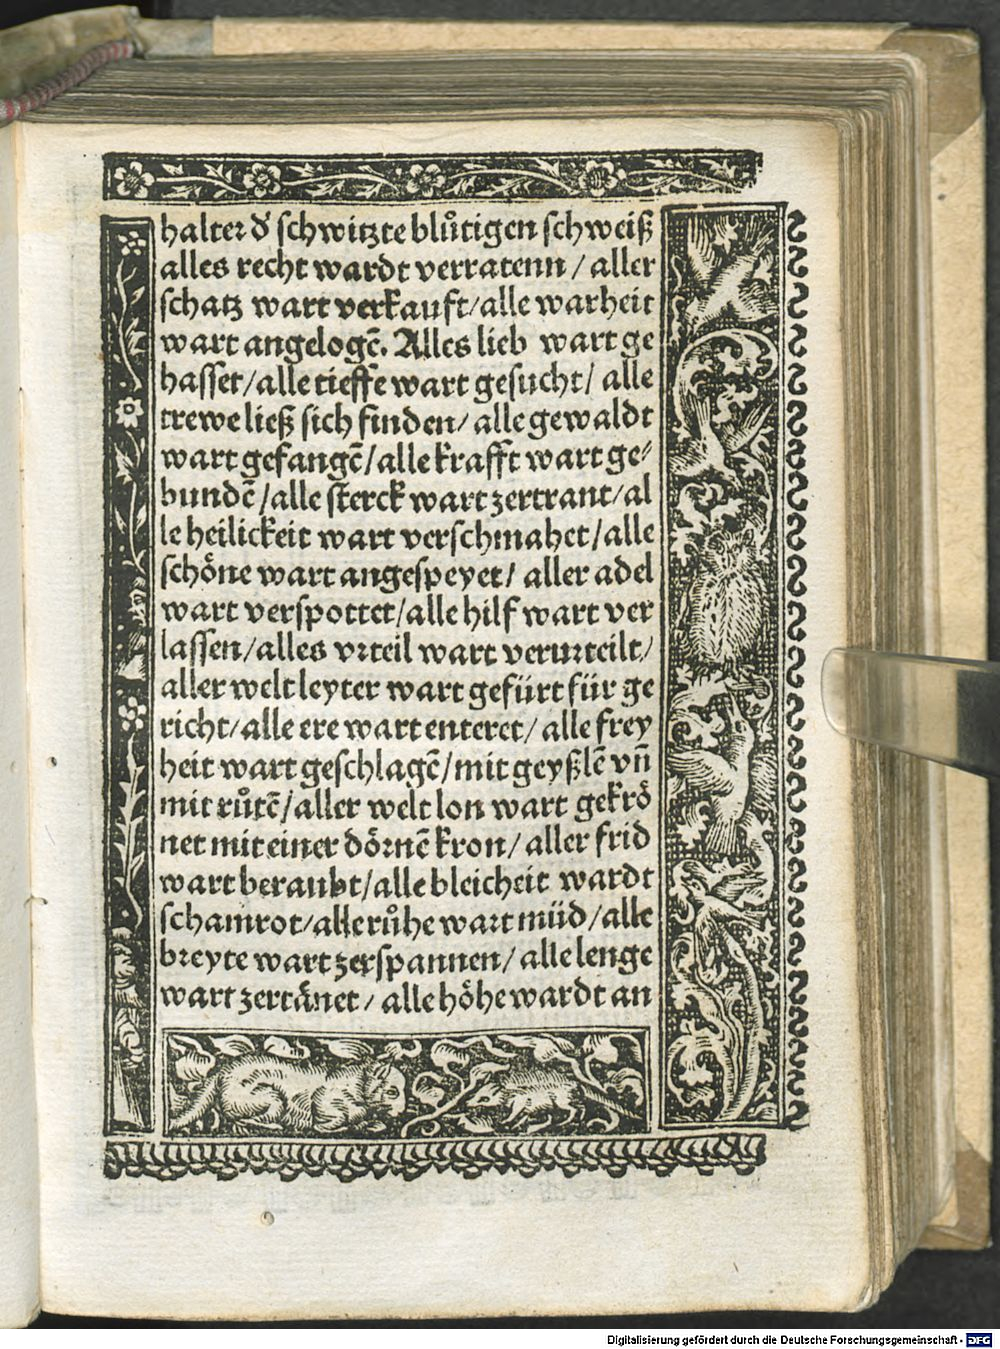 halter d' schwitzte blůtigen schweiß
alles recht wardt verratenn / aller
schatz wart verkauft / alle warheit
wart angelogẽ. Alles lieb wart ge
hasset / alle tieffe wart gesucht / alle
trewe ließ sich finden / alle gewaldt
wart gefangẽ / alle krafft wart ge⸗
bundẽ / alle sterck wart zertrant / al
le heilickeit wart verschmahet / alle
schöne wart angespeyet / aller adel
wart verspottet / alle hilf wart ver
lassen / alles vrteil wart verurteilt /
aller welt leyter wart gefürt für ge
richt / alle ere wart enteret / alle frey
heit wart geschlagẽ / mit geyßlẽ vñ
mit růtẽ / aller welt lon wart gekrö
net mit einer dörnẽ kron / aller frid
wart beraubt / alle bleicheit wardt
schamrot / alle růhe wart müd / alle
breyte wart zerspannen / alle lenge
wart zertänet / alle höhe wardt an
Digitalisierung gefördert durch die Deutsche Forschungsgemeinschaft - DFG